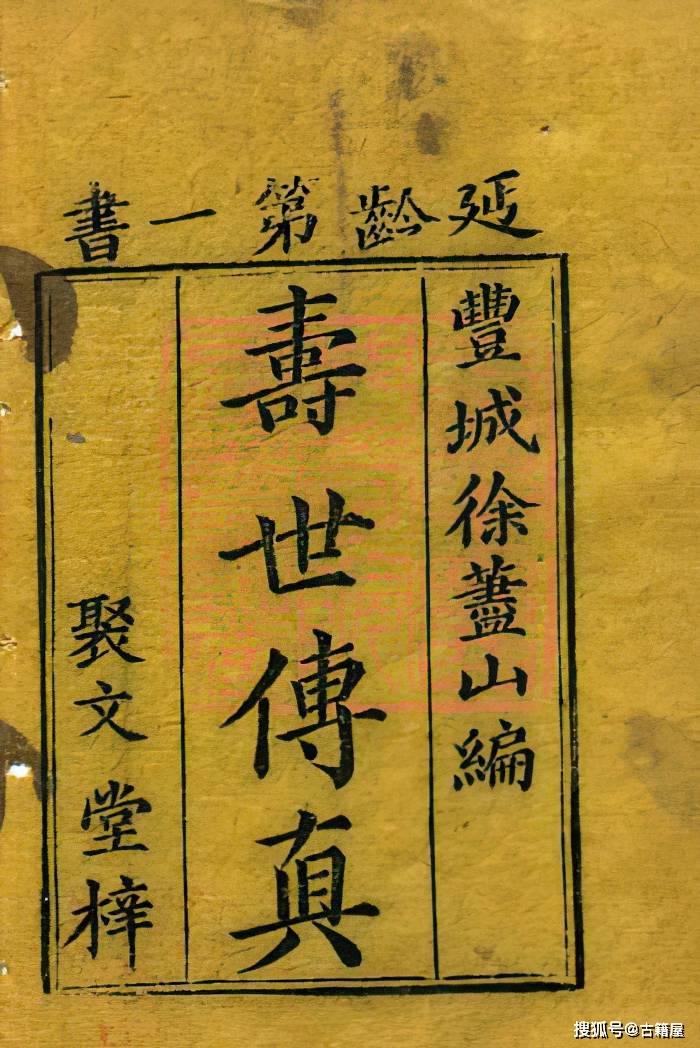 延齡第一書
豐城徐藎山編
壽世傳真
聚文堂梓
搜狐号@古籍屋